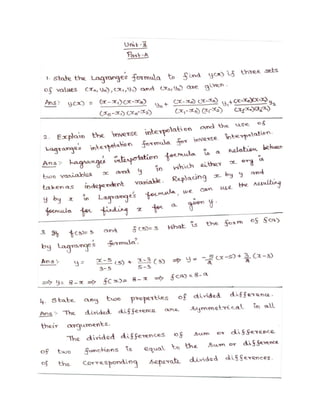 Unit-II
Part-A
1. State the Lagrange's formula to find y(x) if three sets
of values (x₀, y₀), (x₁, y₁) and (x₂, y₂) are given.
Ans: y(x) = (x-x₁)(x-x₂) / (x₀-x₁)(x₀-x₂) y₀ + (x-x₀)(x-x₂) / (x₁-x₀)(x₁-x₂) y₁ + (x-x₀)(x-x₁) / (x₂-x₀)(x₂-x₁) y₂
2. Explain the inverse interpolation and the use of
Lagrange's interpolation formula for inverse interpolation.
Ans:- Lagrange's interpolation formula is a relation between
two variables x and y in which either x or y is
taken as independent variable. Replacing x by y and
y by x in Lagrange's formula, we can use the resulting
formula for finding x for a given y.
3. If f(3)=5 and f(5)=3 What is the form of f(x)
by Lagrange's formula?
Ans: y = x-5/3-5 (5) + x-3/5-3 (3) ⇒ y = -5/2 (x-5) + 3/2 (x-3)
⇒ y = 8-x ⇒ f(x) = 8-x ⇒ f(x) = 8-x
4. State any two properties of divided difference.
Ans:- The divided difference are symmetrical in all
their arguments.
The divided differences of sum or difference
of two functions is equal to the sum or difference
of the corresponding seperate divided differences.